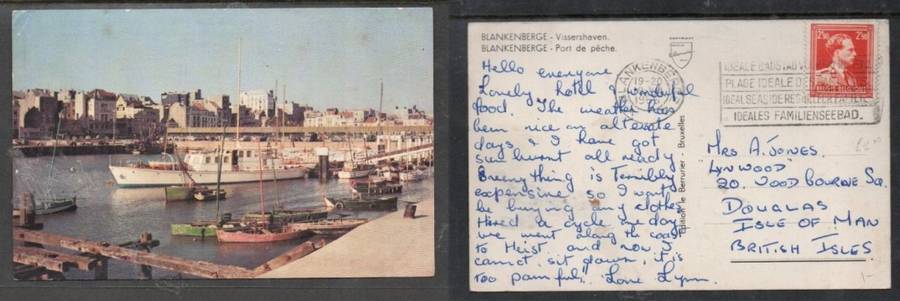 BLANKENBERGE - Vissershaven.
BLANKENBERGE - Port de pêche.
COPYRIGHT
Hello everyone
Lovely hotel & wonderful
food. The weather has
been nice on alternate
days & I have got
sunburnt all ready
Everything is Terribly
expensive so I won't
be buying any clothes
Hired a cycle one day
we went along the coast
to Heist and now I
cannot sit down, it is
too painful, Love Lynn.
Edition le Berrurier - Bruxelles
BLANKENBERGE
19-20
IDEALE BADSTAD VOOR
PLAGE IDEALE DE
IDEAL SEASIDE RESORT FOR FAMILIES
IDEALES FAMILIENSEEBAD.
2F50
2F50
BELGIQUE BELGIE
MRS A. JONES.
"LYNWOOD"
20. WOODBOURNE SQ.
DOUGLAS
ISLE OF MAN
BRITISH ISLES
1-